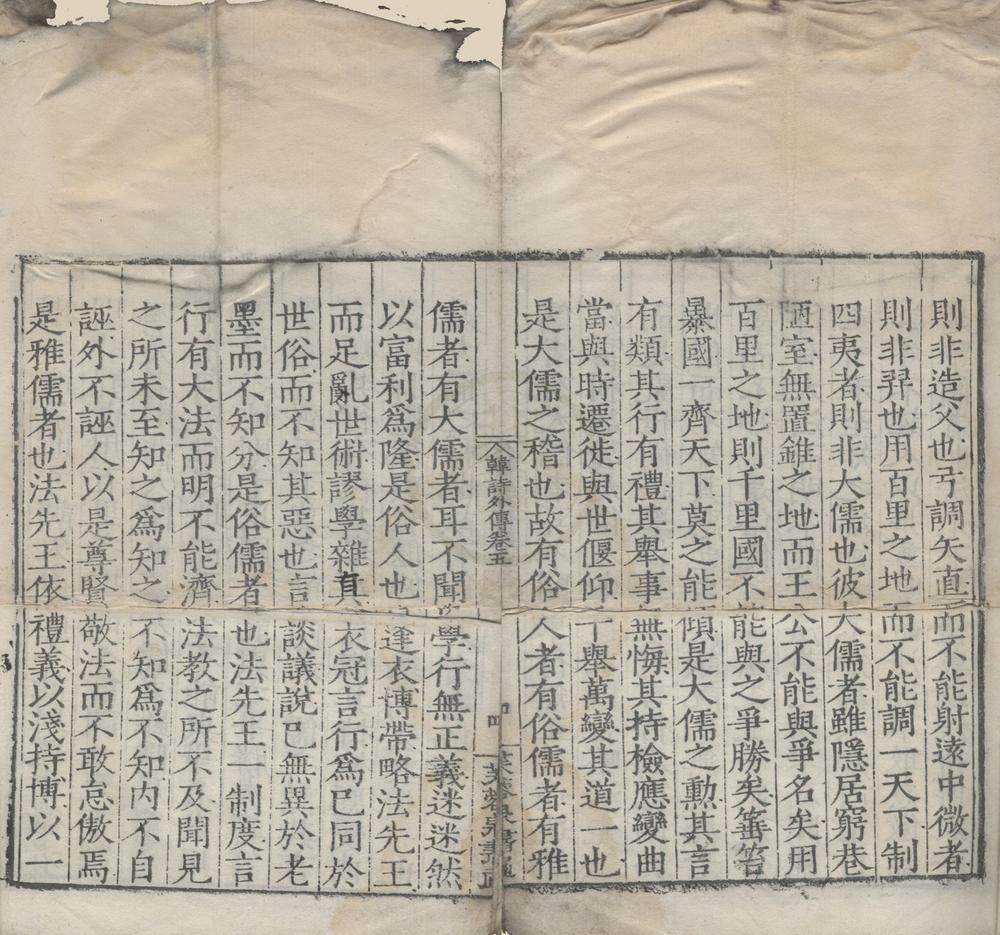 則非造父也弓調矢直而不能射遠中微者
則非羿也用百里之地而不能調一天下制
四夷者則非大儒也彼大儒者雖隱居窮巷
陋室無置錐之地而王公不能與爭名矣用
百里之地則千里國不能與之爭勝矣箠笞
暴國一齊天下莫之能傾是大儒之勳其言
有類其行有禮其舉事無悔其持檢應變曲
當與時遷徙與世偃仰千舉萬變其道一也
是大儒之稽也故有俗人者有俗儒者有雅
韓詩外傳卷五
四
芙蓉泉書屋
儒者有大儒者耳不聞學行無正義迷迷然
以富利爲隆是俗人也逢衣博帶略法先王
而足亂世術謬學雜真衣冠言行爲已同於
世俗而不知其惡也言談議說已無異於老
墨而不知分是俗儒者也法先王一制度言
行有大法而明不能濟法教之所不及聞見
之所未至知之爲知之不知爲不知内不自
誣外不誣人以是尊賢敬法而不敢怠傲焉
是雅儒者也法先王依禮義以淺持博以一